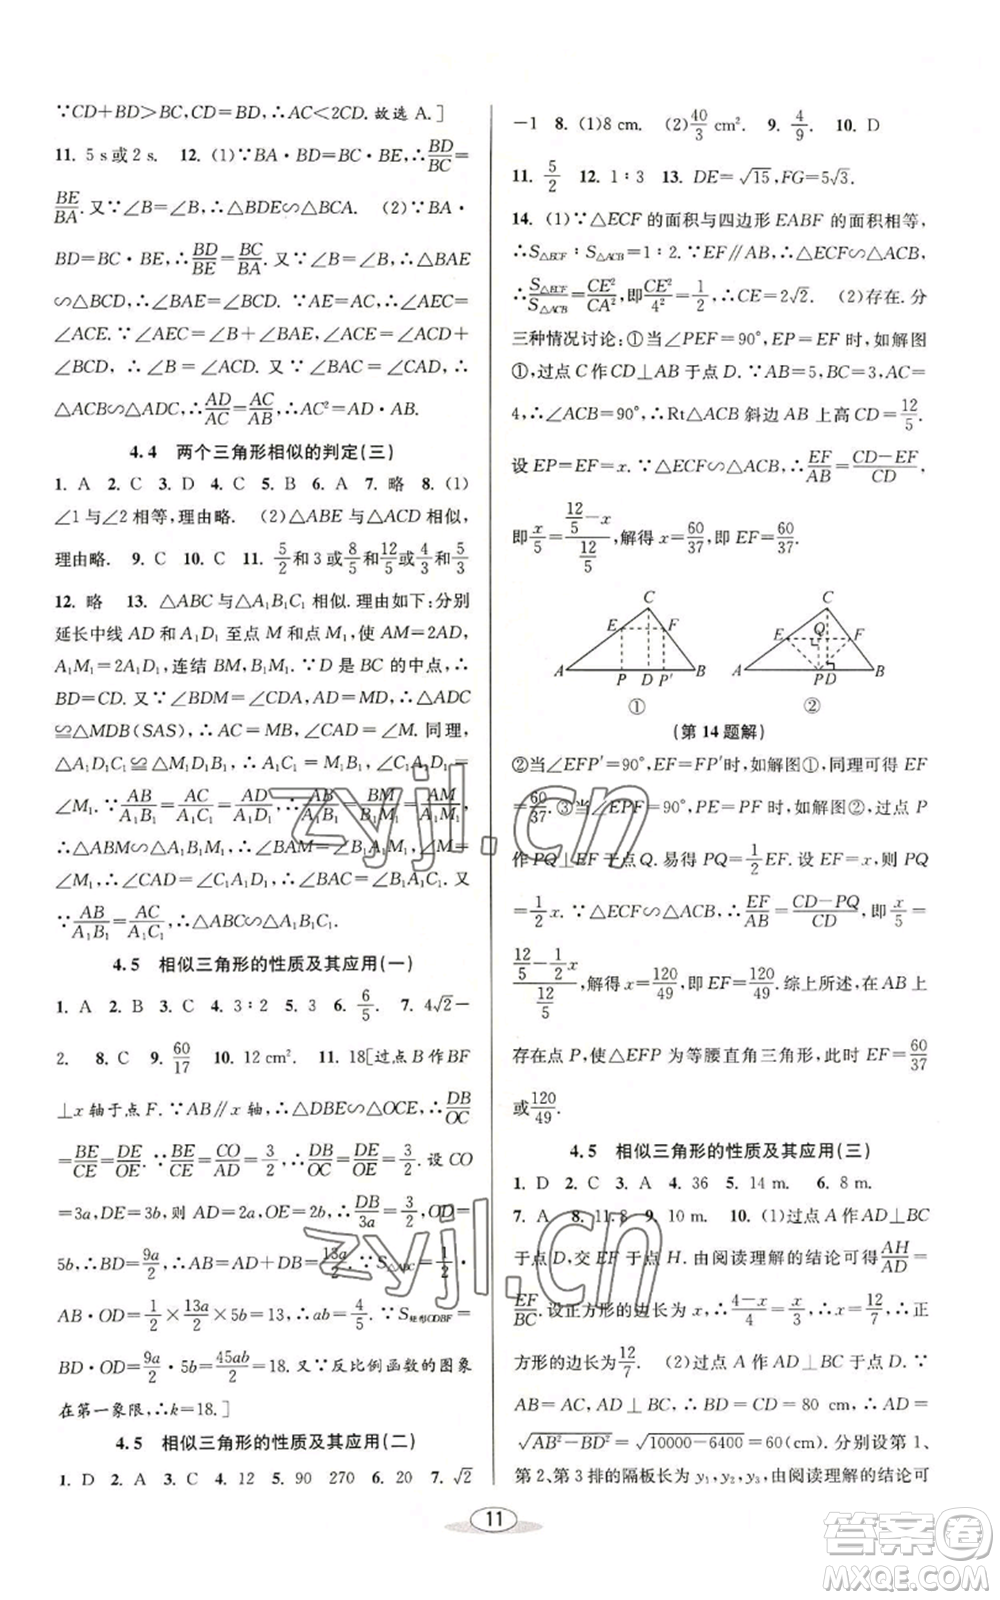 ∵CD+BD>BC,CD=BD,∴AC<2CD.故选 A.]
11. 5 s或2 s. 12. (1)∵BA·BD=BC·BE,∴BD/BC=
BE/BA.又∵∠B=∠B,∴△BDE∽△BCA. (2)∵BA·
BD=BC·BE,∴BD/BE=BC/BA.又∵∠B=∠B,∴△BAE
∽△BCD,∴∠AEB=∠CDB.又∵AE=AC,∴∠AEC=
∠ACE.∵∠AEC=∠B+∠BAE,∠CDB=∠CAD+
∠BCD,∴∠B=∠ACD.又∵∠BAC=∠BAC,∴
△ACB∽△ADC,∴AD/AC=AC/AB,∴AC²=AD·AB.
4.4 两个三角形相似的判定(三)
1. A 2. C 3. D 4. C 5. B 6. A 7. 略 8. (1)
∠1与∠2相等,理由略. (2)△ABE与△ACD相似,
理由略. 9. C 10. C 11. 5/2和3或8/5和12/5或4/3和5/3
12. 略 13. △ABC与△A₁B₁C₁相似.理由如下:分别
延长中线AD和A₁D₁至点M和点M₁,使AM=2AD,
A₁M₁=2A₁D₁,连结BM,B₁M₁.∵D是BC的中点,∴
BD=CD.∵∠BDM=∠CDA,AD=MD,∴△ADC
≌△MDB(SAS),∴AC=MB,∠CAD=∠M.同理,
△A₁D₁C₁≌△M₁D₁B₁,∴A₁C₁=M₁B₁,∠C₁A₁D₁=
∠M₁.∵AB/A₁B₁=AC/A₁C₁=AD/A₁D₁,∴AB/A₁B₁=BM/B₁M₁=AM/A₁M₁,
∴△ABM∽△A₁B₁M₁,∴∠BAD=∠B₁A₁D₁,∠M=
∠M₁,∴∠CAD=∠C₁A₁D₁,∴∠BAC=∠B₁A₁C₁.又
∵AB/A₁B₁=AC/A₁C₁,∴△ABC∽△A₁B₁C₁.
4.5 相似三角形的性质及其应用(一)
1. A 2. B 3. C 4. 3∶2 5. 3 6. 6/5. 7. 4√2−
2. 8. C 9. 60/17 10. 12 cm². 11. 18[过点B作BF
⊥x轴于点F.∵AB∥x轴,∴△DBE∽△OCE,∴DB/OC
=BE/CE=DE/OE.∵BE/CE=CO/AD=3/2,∴DB/OC=DE/OE=3/2.设CO
=3a,DE=3b,则AD=2a,OE=2b,∴DB/3a=3/2,OD=
5b,∴BD=9a/2,∴AB=AD+DB=13a/2.∵S△ABC=1/2·
AB·OD=1/2×13a/2×5b=13,∴ab=4/5.∵S矩形ODBF=
BD·OD=9a/2·5b=45ab/2=18.又∵反比例函数的图象
在第一象限,∴k=18.]
4.5 相似三角形的性质及其应用(二)
1. D 2. A 3. 2 4. 12 5. 90 270 6. 20 7. √2
−1 8. (1)8 cm. (2)40/3 cm². 9. 4/9. 10. D
11. 5/2 12. 1∶3 13. DE=√15,FG=5√3.
14. (1)∵△ECF的面积与四边形EABF的面积相等,
∴S△ECF∶S△ACB=1∶2.∵EF∥AB,∴△ECF∽△ACB,
∴S△ECF/S△ACB=CE²/CA²,即CE²/4²=1/2,∴CE=2√2. (2)存在.分
三种情况讨论:①当∠PEF=90°,EP=EF时,如解图
①,过点C作CD⊥AB于点D.∵AB=5,BC=3,AC=
4,∴∠ACB=90°,∴Rt△ACB斜边AB上高CD=12/5.
设EP=EF=x.∵△ECF∽△ACB,∴EF/AB=(CD−EF)/CD,
即x/5=(12/5−x)/(12/5),解得x=60/37,即EF=60/37.
C E F A P D P′ B
①
C E Q F A PD B
②
(第14题解)
②当∠EFP′=90°,EF=FP′时,如解图①,同理可得EF
=60/37.③当∠EPF=90°,PE=PF时,如解图②,过点P
作PQ⊥EF于点Q.易得PQ=1/2EF.设EF=x,则PQ
=1/2x.∵△ECF∽△ACB,∴EF/AB=(CD−PQ)/CD,即x/5=
(12/5−1/2x)/(12/5),解得x=120/49,即EF=120/49.综上所述,在AB上
存在点P,使△EFP为等腰直角三角形,此时EF=60/37
或120/49.
4.5 相似三角形的性质及其应用(三)
1. D 2. C 3. A 4. 36 5. 14 m. 6. 8 m.
7. A 8. 11.8 9. 10 m. 10. (1)过点A作AD⊥BC
于点D,交EF于点H.由阅读理解的结论可得AH/AD=
EF/BC.设正方形的边长为x,∴(4−x)/4=x/3,∴x=12/7,∴正
方形的边长为12/7. (2)过点A作AD⊥BC于点D.∵
AB=AC,AD⊥BC,∴BD=CD=80 cm,∴AD=
√(AB²−BD²)=√(10000−6400)=60(cm).分别设第1、
第2、第3排的隔板长为y₁,y₂,y₃,由阅读理解的结论可
11
zyjl.cn
zyjl.cn
答案卷
MXQE.COM